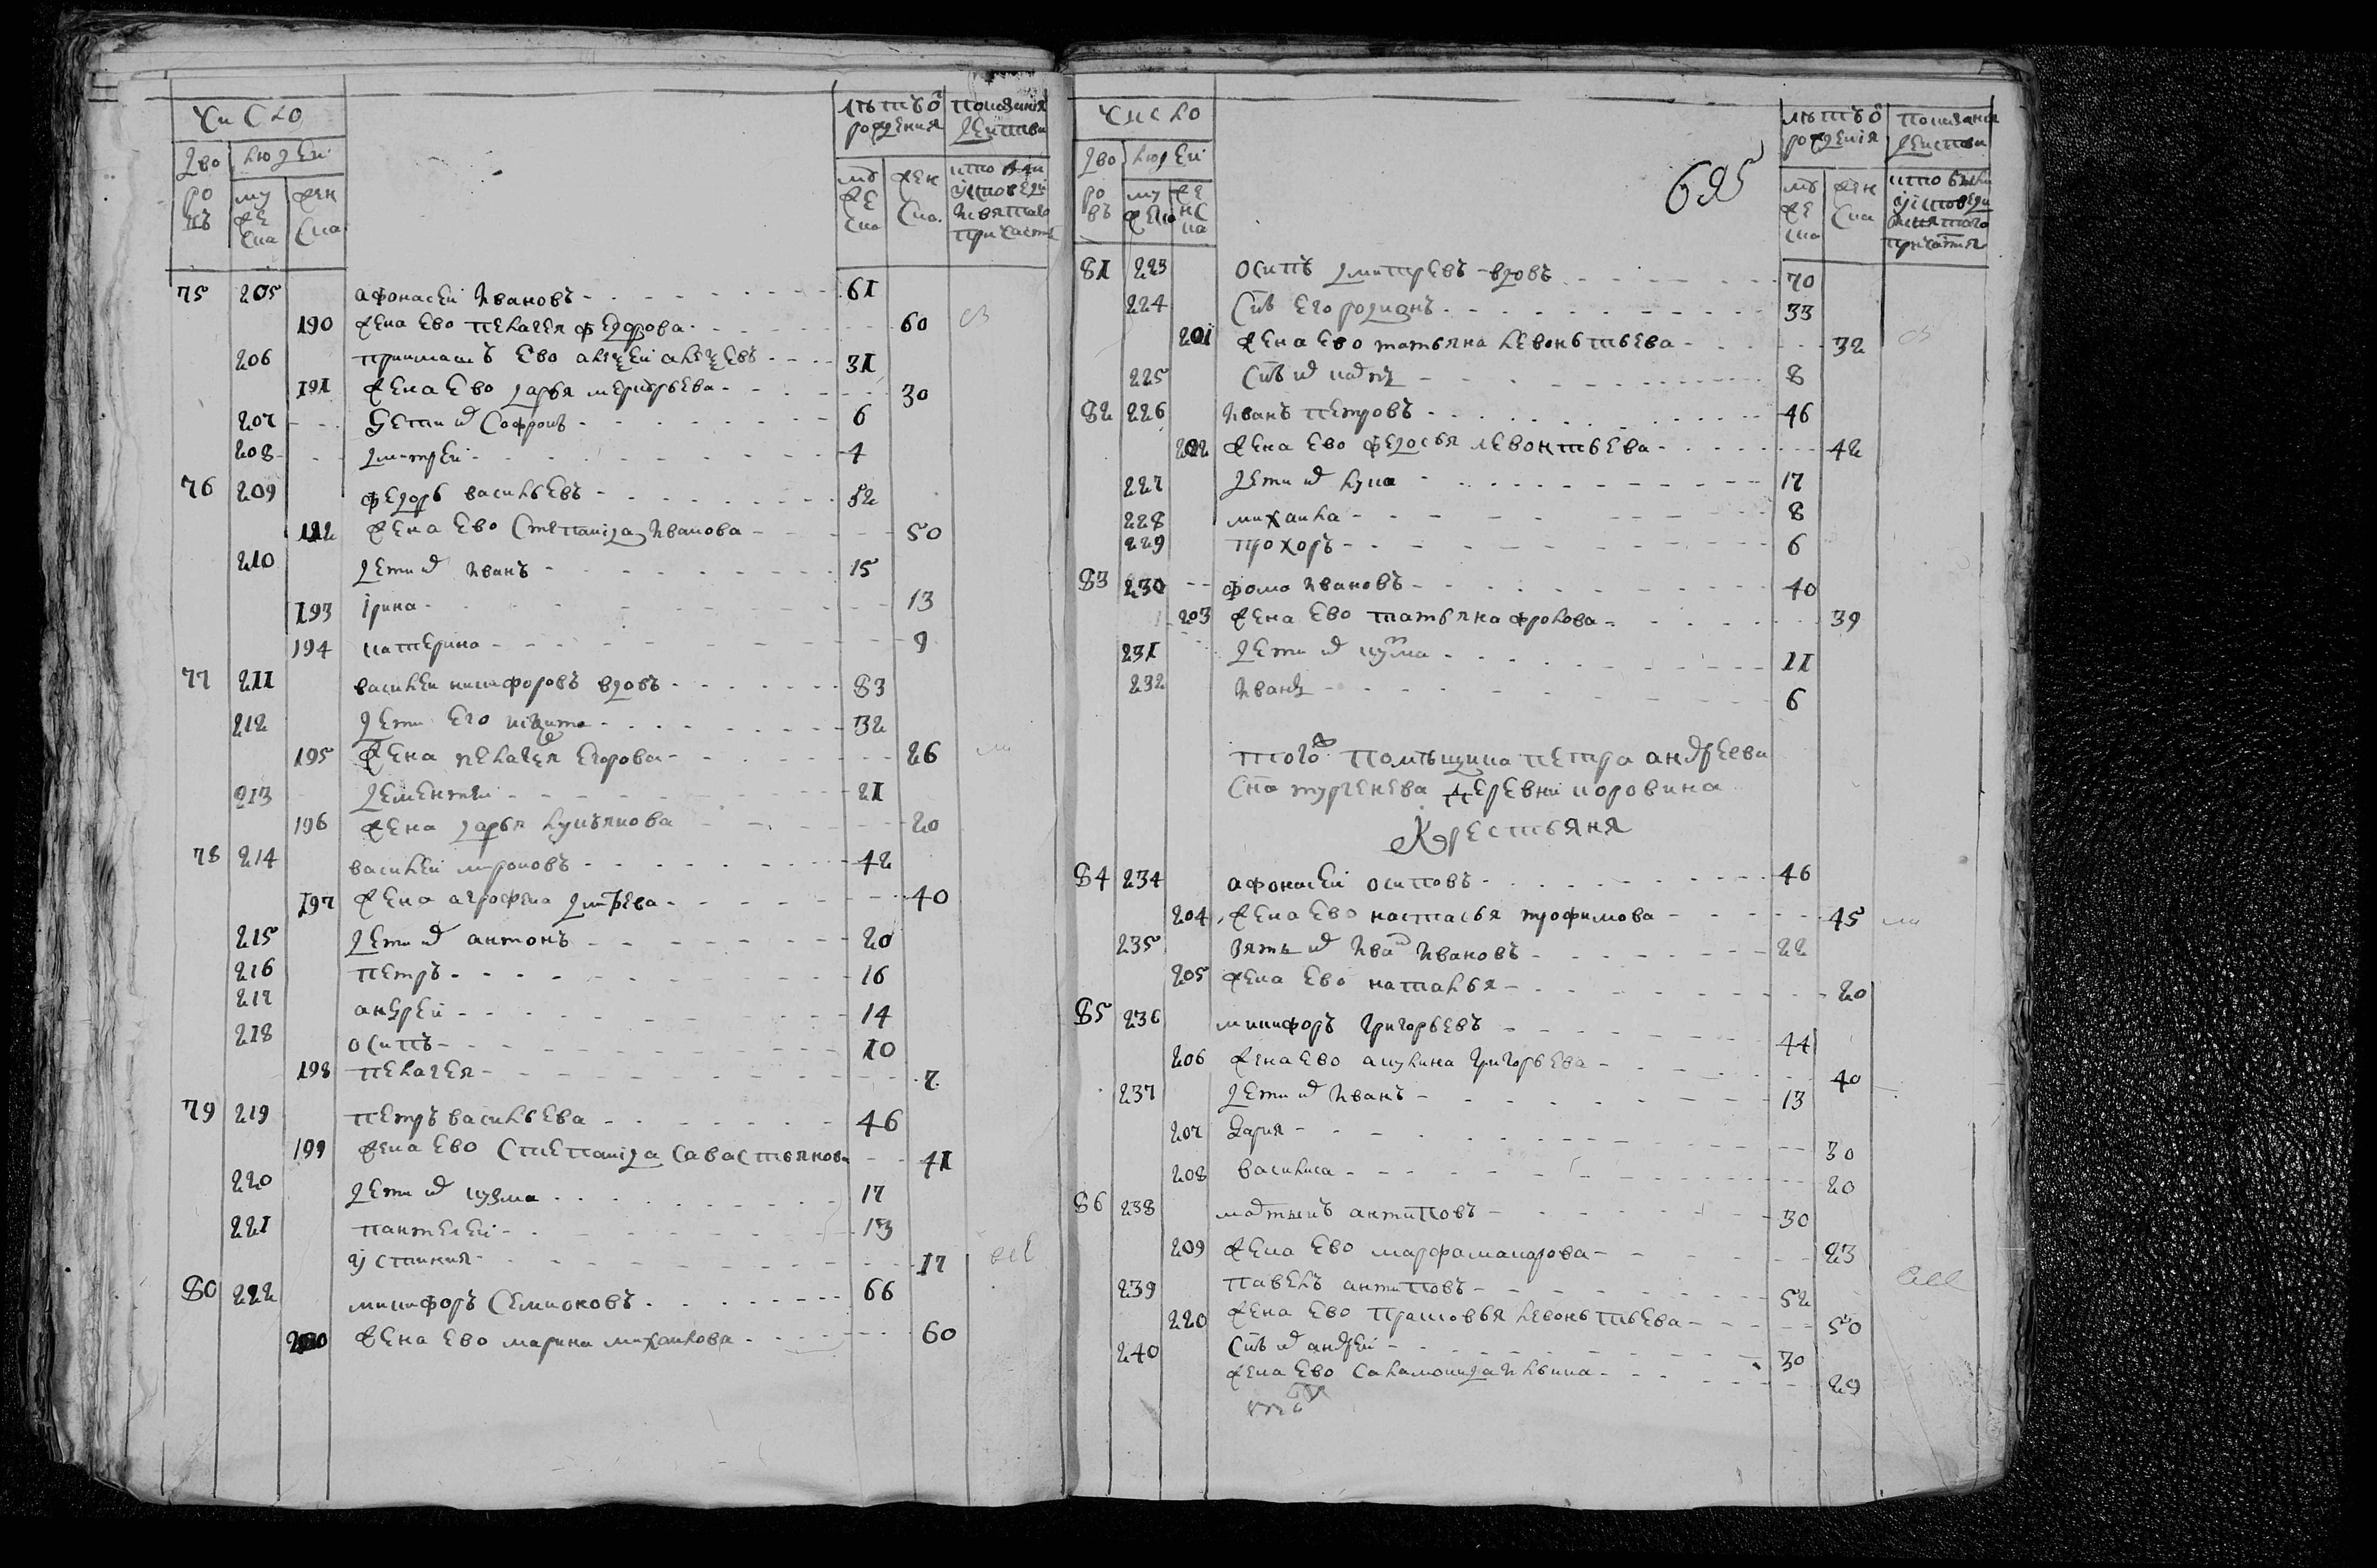 Число
лѣтъ ѿ рождения
показания действа
дворовъ
людей
мужеска
женска
мужеска
женска
кто были у исповеди и святаго причастия
75 205 афонасей Ивановъ 61
190 жена ево пелагея федорова 60
206 приимашъ ево алеѯей алеѯеевъ 31
191 жена ево дарья 30
207 дети их Софронъ 6
208 дмитрей 4
76 209 федоръ васильевъ 52
192 жена ево Степанида Иванова 50
210 дети их Иванъ 15
193 ирина 13
194 катерина 8
77 211 василей никифоровъ вдовъ 83
212 дети его никита 32
195 жена пелагея егорова 26
213 дементей 21
196 жена дарья лукьянова 20
78 214 василей мироновъ 42
197 жена аграфена дмитрева 40
215 дети их антонъ 20
216 петръ 16
217 андрей 14
218 осипъ 10
198 пелагея 7
79 219 петръ васильева 46
199 жена ево Степанида Савастьянова 41
220 дети их кузма 17
221 пантелей 13
устиния 17
80 222 микифоръ Семионовъ 66
200 жена ево марина михаилова 60
Число
695
лѣтъ ѿ рождения
показания действа
дворовъ
людей
мужеска
женска
мужеска
женска
кто были у исповеди и святаго причастия
81 223 осипъ дмитревъ вдовъ 70
224 Снъ его родионъ 33
201 жена ево татьяна левонътьева 32
225 Снъ их 8
82 226 Иванъ петровъ 46
202 жена ево федосья левонтьева 42
227 дети их лука 17
228 михаила 8
229 прохоръ 6
83 230 фома Ивановъ 40
203 жена ево татьяна фролова 39
231 дети их кузма 11
232 Иванъ 6
того ж помѣщика петра андреева
Сна тургенева деревни коровина
Крестьяня
84 234 афонасей осиповъ 46
204 жена ево настасья трофимова 45
235 зять их Иванъ Ивановъ 22
205 жена ево наталья 20
85 236 микифоръ григорьевъ 44
206 жена ево акулина григорьева 40
237 дети их Иванъ 13
207 дария 30
208 василиса 20
86 238 мартынъ антиповъ 30
209 жена ево марфа макарова 23
239 павелъ антиповъ 52
220 жена ево прасковья левонътьева 50
240 Снъ их андрей 30
жена ево саламонида Ильина 29